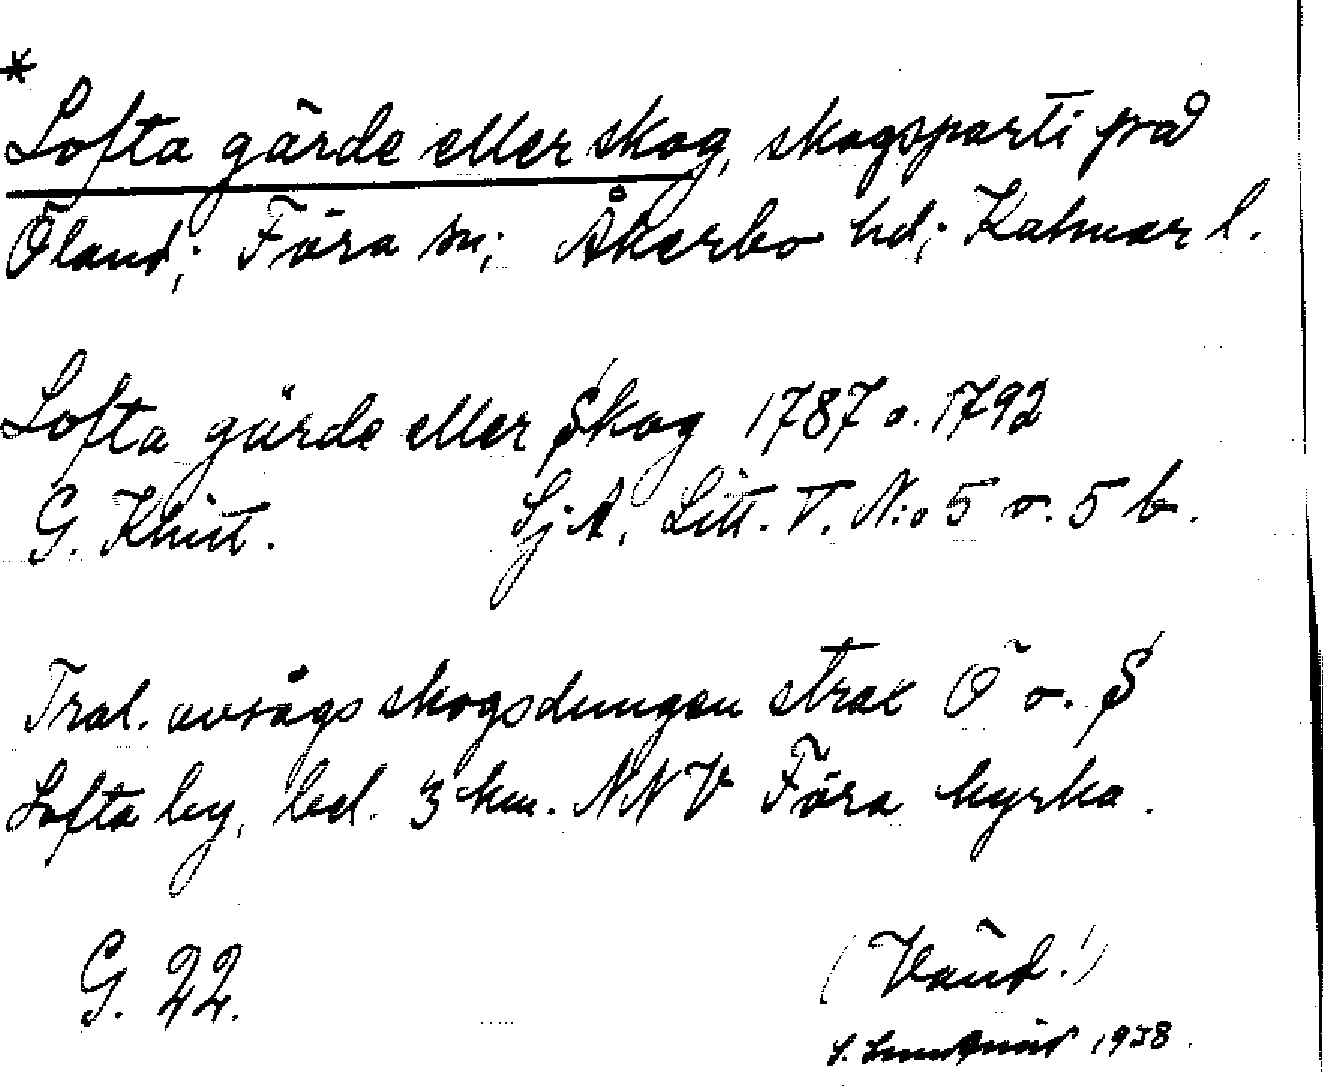 *
Lofta gärde eller skog, skogsparti på
Öland; Föra sn; Åkerbo hd; Kalmar l.
Lofta gärde eller Skog 1787 o. 1792
G. Khitt. Sj.A, Litt. T. N:o 5 o. 5 b.
Trol. avsågs skogsdungen strax Ö o. S
Lofta by, bel. 3 km. NNV Föra kyrka.
G. 22.
(Vänd!)
S. Lundqvist 1938.